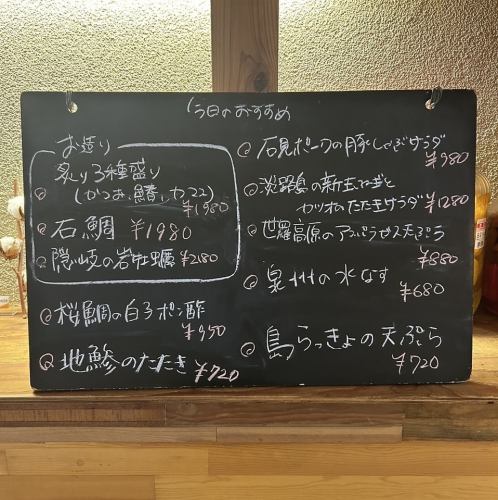 今日のおすすめ
お造り
炙り3種盛り
(かつお、鰆、カマス)
¥1980
石鯛 ¥1980
隠岐の岩牡蠣 ¥2180
桜鯛の白子ポン酢
¥950
地鯵のたたき ¥720
石見ポークの豚しゃぶサラダ
¥980
淡路島の新玉ねぎと
カツオたたきサラダ ¥1280
世羅高原のアスパラガス天ぷら
¥880
泉州の水なす
¥680
島らっきょの天ぷら
¥720